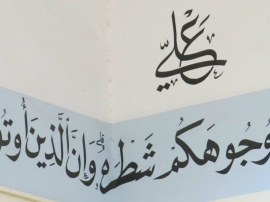 عَلِيّ
وُجُوهَكُمْ شَطْرَهُ وَإِنَّ الَّذِينَ أُوتُوا